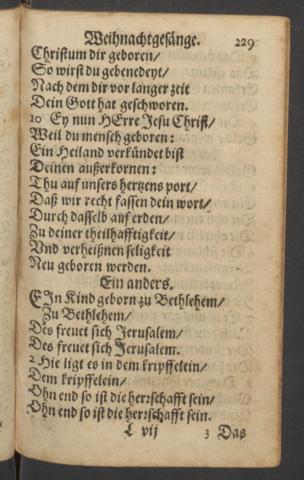 Weihnachtgesänge. 229
Christum dir geboren/
So wirst du gebenedeyt/
Nach dem dir vor langer zeit
Dein Gott hat geschworen.
10 Ey nun HErre Jesu Christ/
Weil du mensch geboren:
Ein Heiland verkündet bist
Deinen außerkornen:
Thu auf unsers hertzens port/
Daß wir recht fassen dein wort/
Durch dasselb auf erden/
Zu deiner theilhafftigkeit/
Vnd verheißnen seligkeit
Neu geboren werden.
Ein anders.
EIn Kind geborn zu Bethlehem/
Zu Bethlehem/
Des freuet sich Jerusalem/
Des freuet sich Jerusalem.
2 Hie ligt es in dem kripffelein/
Dem kripffelein/
Ohn end so ist die herrschafft sein/
Ohn end so ist die herrschafft sein.
L vij 3 Das